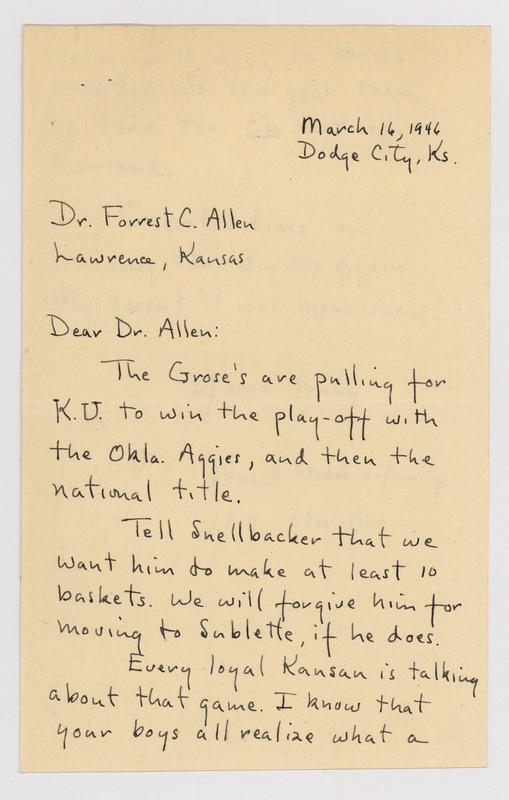 March 16, 1946
Dodge City, Ks.
Dr. Forrest C. Allen
Lawrence, Kansas
Dear Dr. Allen:
The Grose's are pulling for
K.U. to win the play-off with
the Okla. Aggies, and then the
national title.
Tell Snellbacker that we
want him to make at least 10
baskets. We will forgive him for
moving to Sublette, if he does.
Every loyal Kansan is talking
about that game. I know that
your boys all realize what a